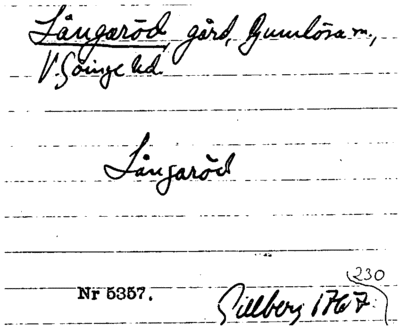 Långaröd, gård, Gumlösa sn.,
V. Göinge hd.
Långaröd
230
Nr 5357.
Gillberg 1767.